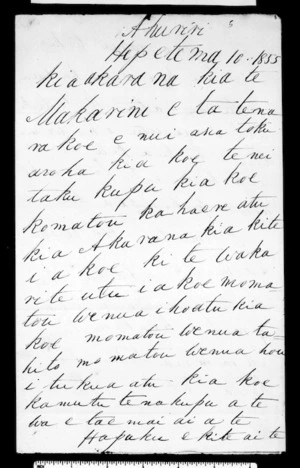 Ahuriri
Hepetema 10. 1855
kia akarana kia te
Makarini E ta tena
ra koe e nui ana toku
aroha kia koe tenei
taku kupu kia koe
komatou ka haere atu
kia Akarana kia kite
i a koe ki te waka
rite utu i a koe moma
tou wenua i hoatu kia
koe momatou wenua ta
hito mo matou wenua hou
i tukua atu kia koe
kamutu tenakupu a te
wa e tae mai ai a te
Hapuku e kite ai te